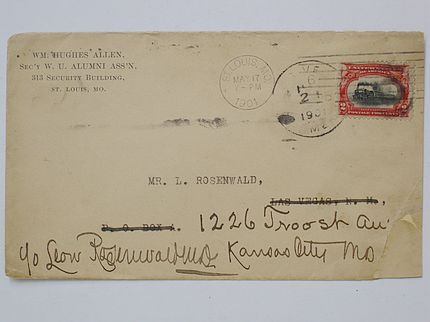 WM. HUGHES ALLEN,
SEC'Y W. U. ALUMNI ASS'N,
313 SECURITY BUILDING,
ST. LOUIS, MO.
ST. LOUIS, MO.
MAY 17
PM
1901
6
2
190
2
POSTAGE TWO CENTS
2
MR. L. ROSENWALD,
LAS VEGAS, N. M.,
P. O. BOX
1226 Troost Av
c/o Leon Rosenwald Kansas City Mo